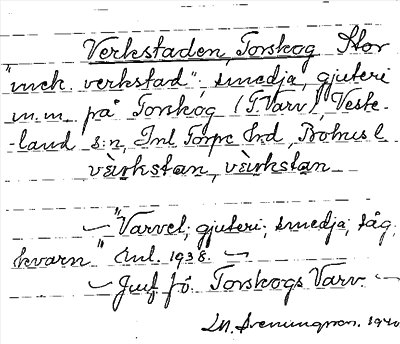 Verkstaden, Torskog Stor
"mek. verkstad"; smedja, gjuteri
m.m. på Torskog (T. Varv), Veste-
-land s:n, Inl Torpe hd, Bohus l.
vèrkstan, vèrkstan
"Varvet; gjuteri; smedja; såg,
kvarn" Inl. 1938.
Jmf fö. Torskogs Varv.
1940